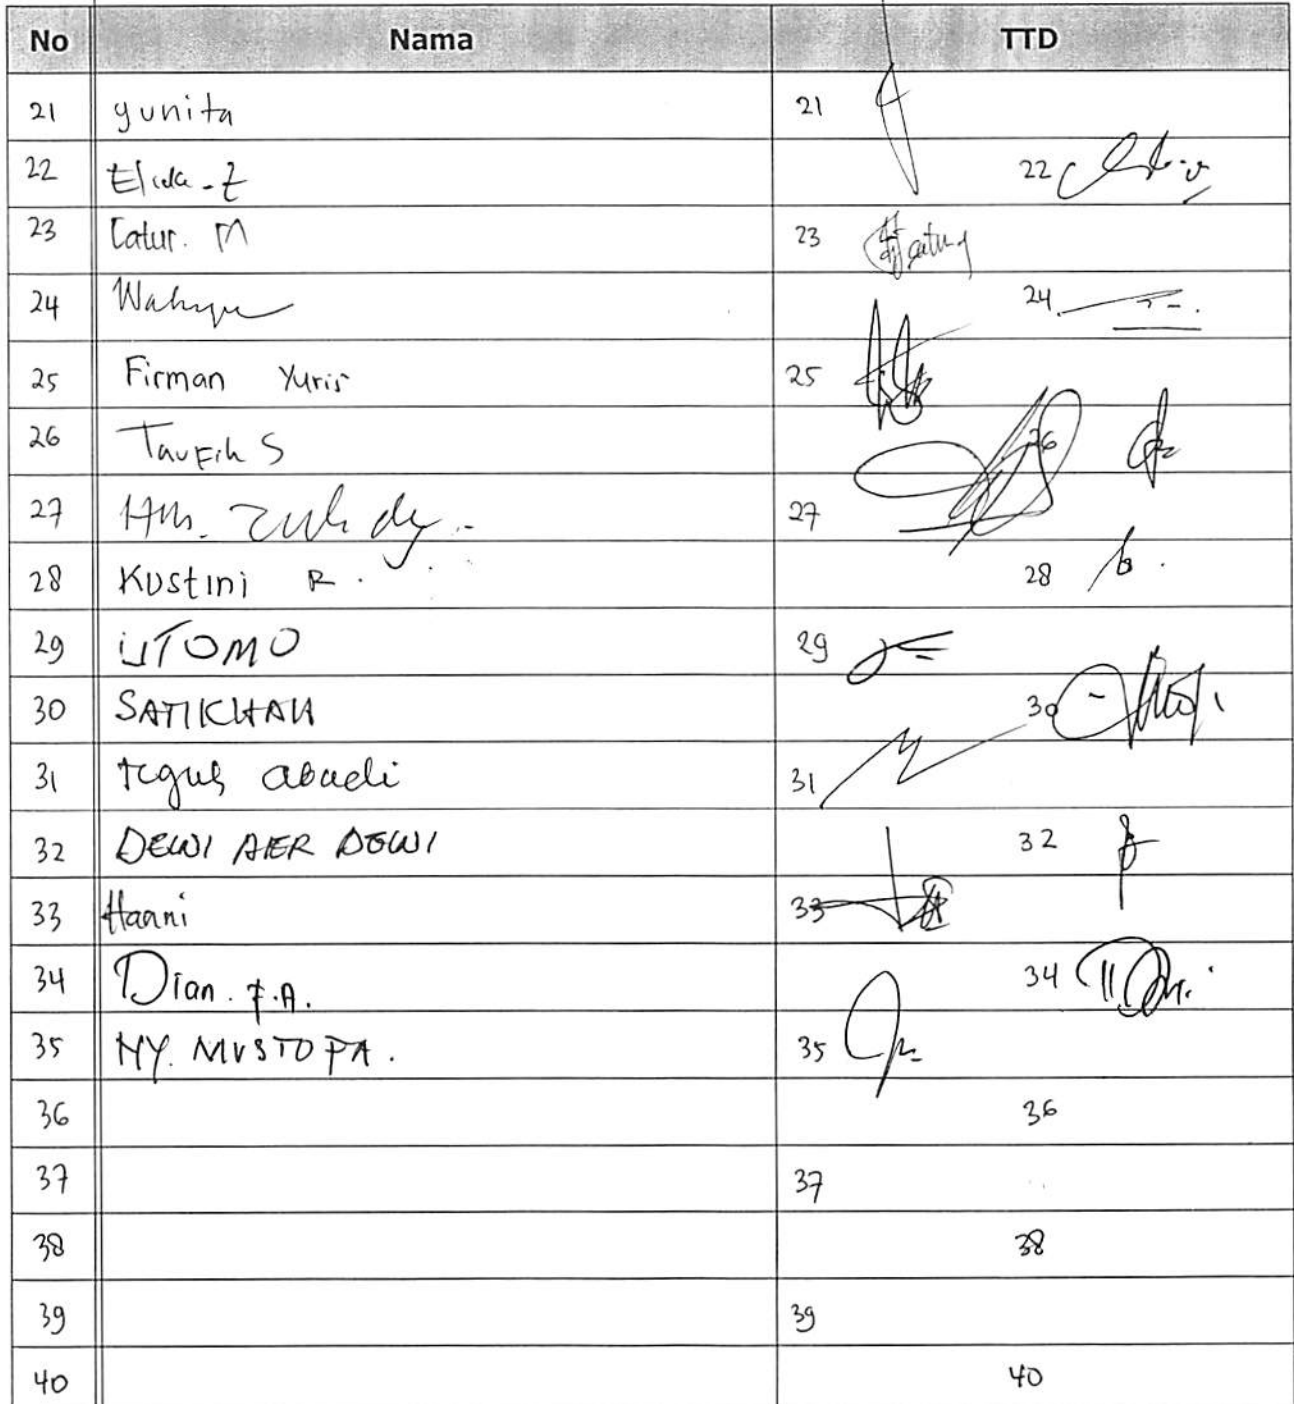 No Nama TTD
21 yunita 21
22 Elida - Z 22
23 Catur. M 23 Catur
24 Wahyu 24.
25 Firman Yuris 25
26 Taufik S 26
27 Hm. Zuhdy.- 27
28 Kustini R. 28
29 UTOMO 29
30 SATIKHAH 30
31 teguh abadi 31
32 DEWI AER DEWI 32
33 Hanni 33
34 Dian. F.A. 34
35 NY. MUSTOFA. 35
36 36
37 37
38 38
39 39
40 40